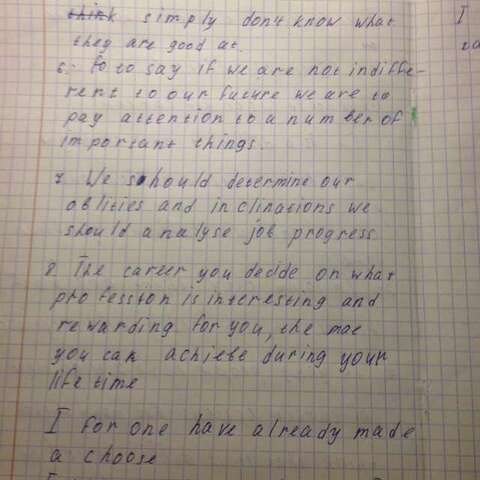 think simply don't know what
they are good at.
6. To to say if we are not indiffe-
rent to our future we are to
pay attention to a number of
important things.
7 We should determine our
oblities and inclinations we
should analyse job progress
8 The career you decide on what
profession is interesting and
rewarding for you, the moe
you can achiete during your
life time
I for one have already made
a choose
I